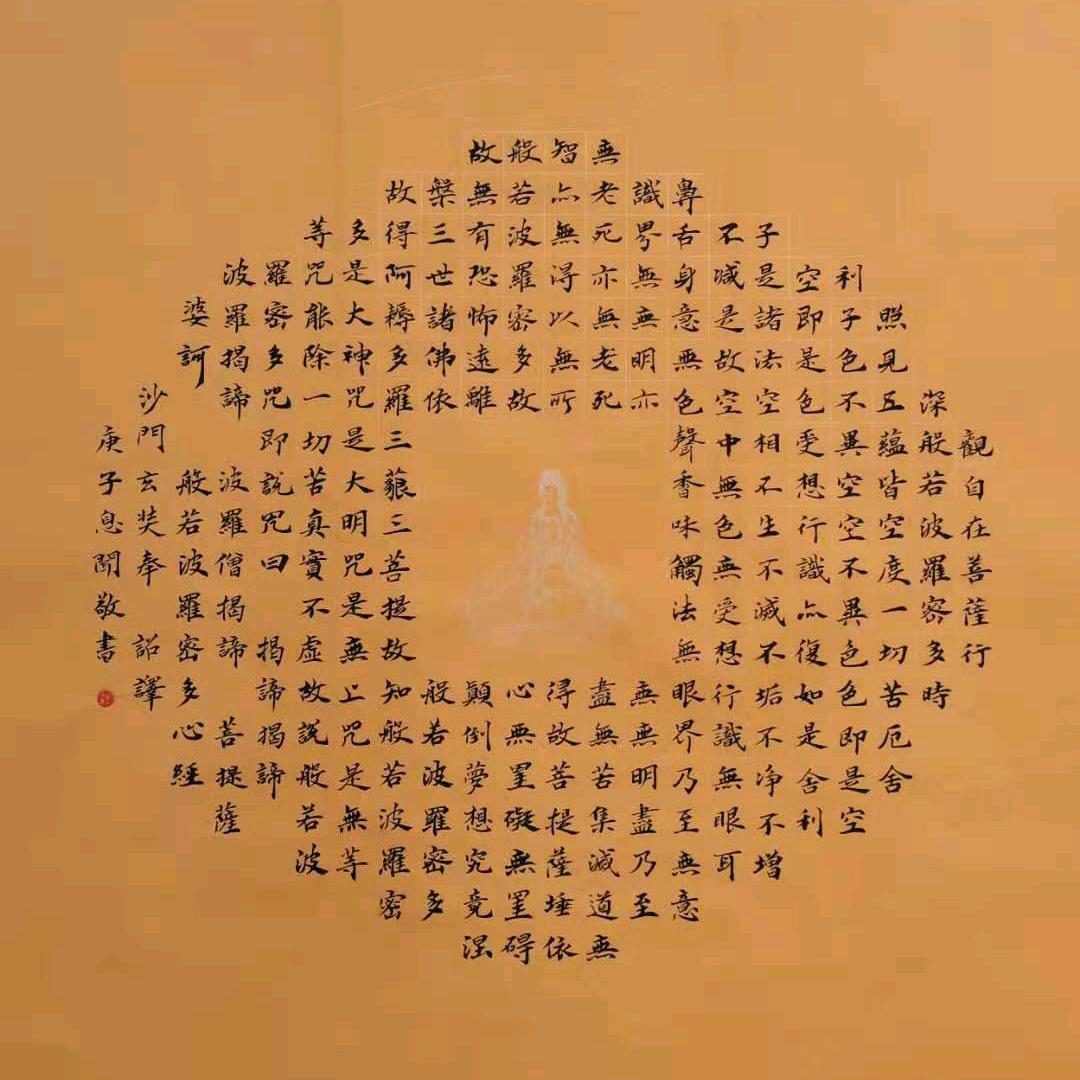 觀自在菩薩行
深般若波羅密多時
照見五蘊皆空度一切苦厄舍
利子色不異空空不異色色即是空
空即是色受想行識亦復如是舍利
子是諸法空相不生不滅不垢不净不增
不減是故空中無色無受想行識無眼耳
鼻舌身意無色聲香味觸法無眼界乃至無意
識界無無明亦無無明盡乃至
無老死亦無老死盡無苦集滅道無
智亦無得以無所得故菩提薩埵依
般若波羅密多故心無罣礙無罣碍
故無有恐怖遠離顛倒夢想究竟涅
槃三世諸佛依般若波羅密多
故得阿耨多羅三藐三菩提故知般若波羅密
多是大神咒是大明咒是無上咒是無等
等咒能除一切苦真實不虛故說般若波
羅密多咒即說咒曰 揭諦揭諦
波羅揭諦 波羅僧揭諦 菩提薩
婆訶 般若波羅密多心經
沙門玄奘奉 詔譯
庚子息聞敬書